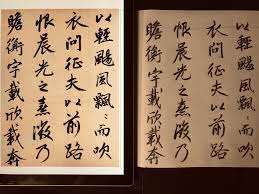 以輕颺風飄〻而吹
衣問征夫以前路
恨晨光之熹微乃
瞻衡宇載欣載奔
以輕颺風飄〻而吹
衣問征夫以前路
恨晨光之熹微乃
瞻衡宇載欣載奔